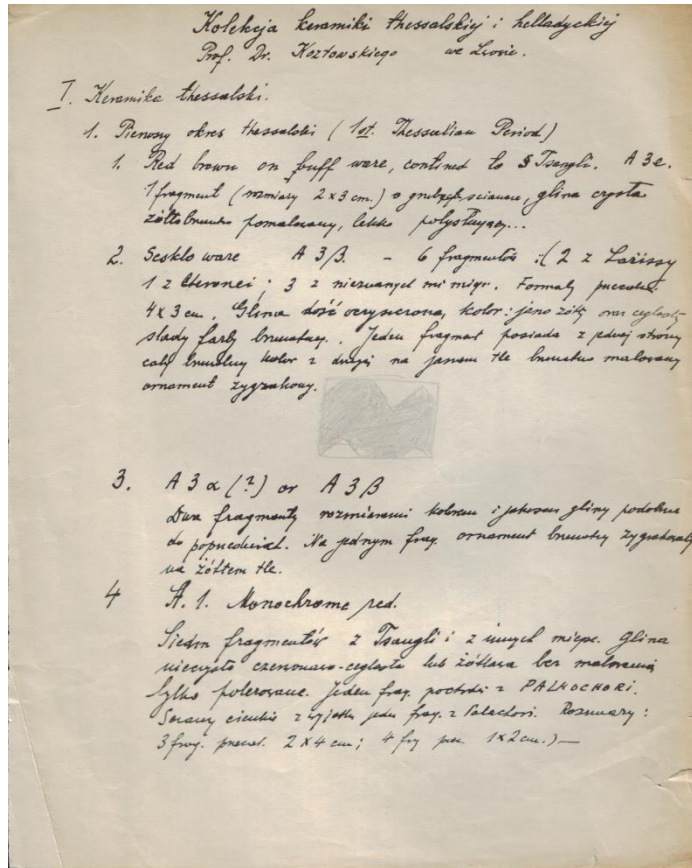 Kolekcja keramiki thessalskiej i helladyckiej
Prof. Dr. Kozłowskiego we Lwowie.
I. Keramika thessalski.
1. Pierwszy okres thessalski (1st. Thessalian Period)
1. Red brown on buff ware, confined to Tsangli. A 3 e.
1 fragment (rozmiary 2 x 3 cm.) o ścianie, glina czysta
żółtobrunatno pomalowany, lekko
2. Sesklo ware A 3 β. - 6 fragmentów :( 2 z Larissy
1 z ; 3 z nieznanych mi miejsc. Formaty
4 x 3 cm. Glina dość oczyszczona, kolor: jasno żółty oraz ceglasty
ślady farby brunatnej. Jeden fragment posiada z jednej strony
cały brunatny kolor z drugiej na jasnem tle brunatno malowany
ornament zygzakowy.
3. A 3 α (?) or A 3 β
Dwa fragmenty rozmiarami kolorem i jakością gliny podobne
do poprzednich. Na jednym frag. ornament brunatny zygzakowaty
na żółtem tle.
4 A. 1. Monochrome red.
Siedm fragmentów z Tsangli i z innych miejsc. Glina
nieczysta czerwonawo-ceglasta lub żółtawa bez malowania
tylko polerowane. Jeden frag. pochodzi z PALHOCHORI.
Ściany cienkie z wyjątk. jedn. frag. z Palachori. Rozmiary:
3 frag. 2 x 4 cm; 4 1 x 2 cm.) —